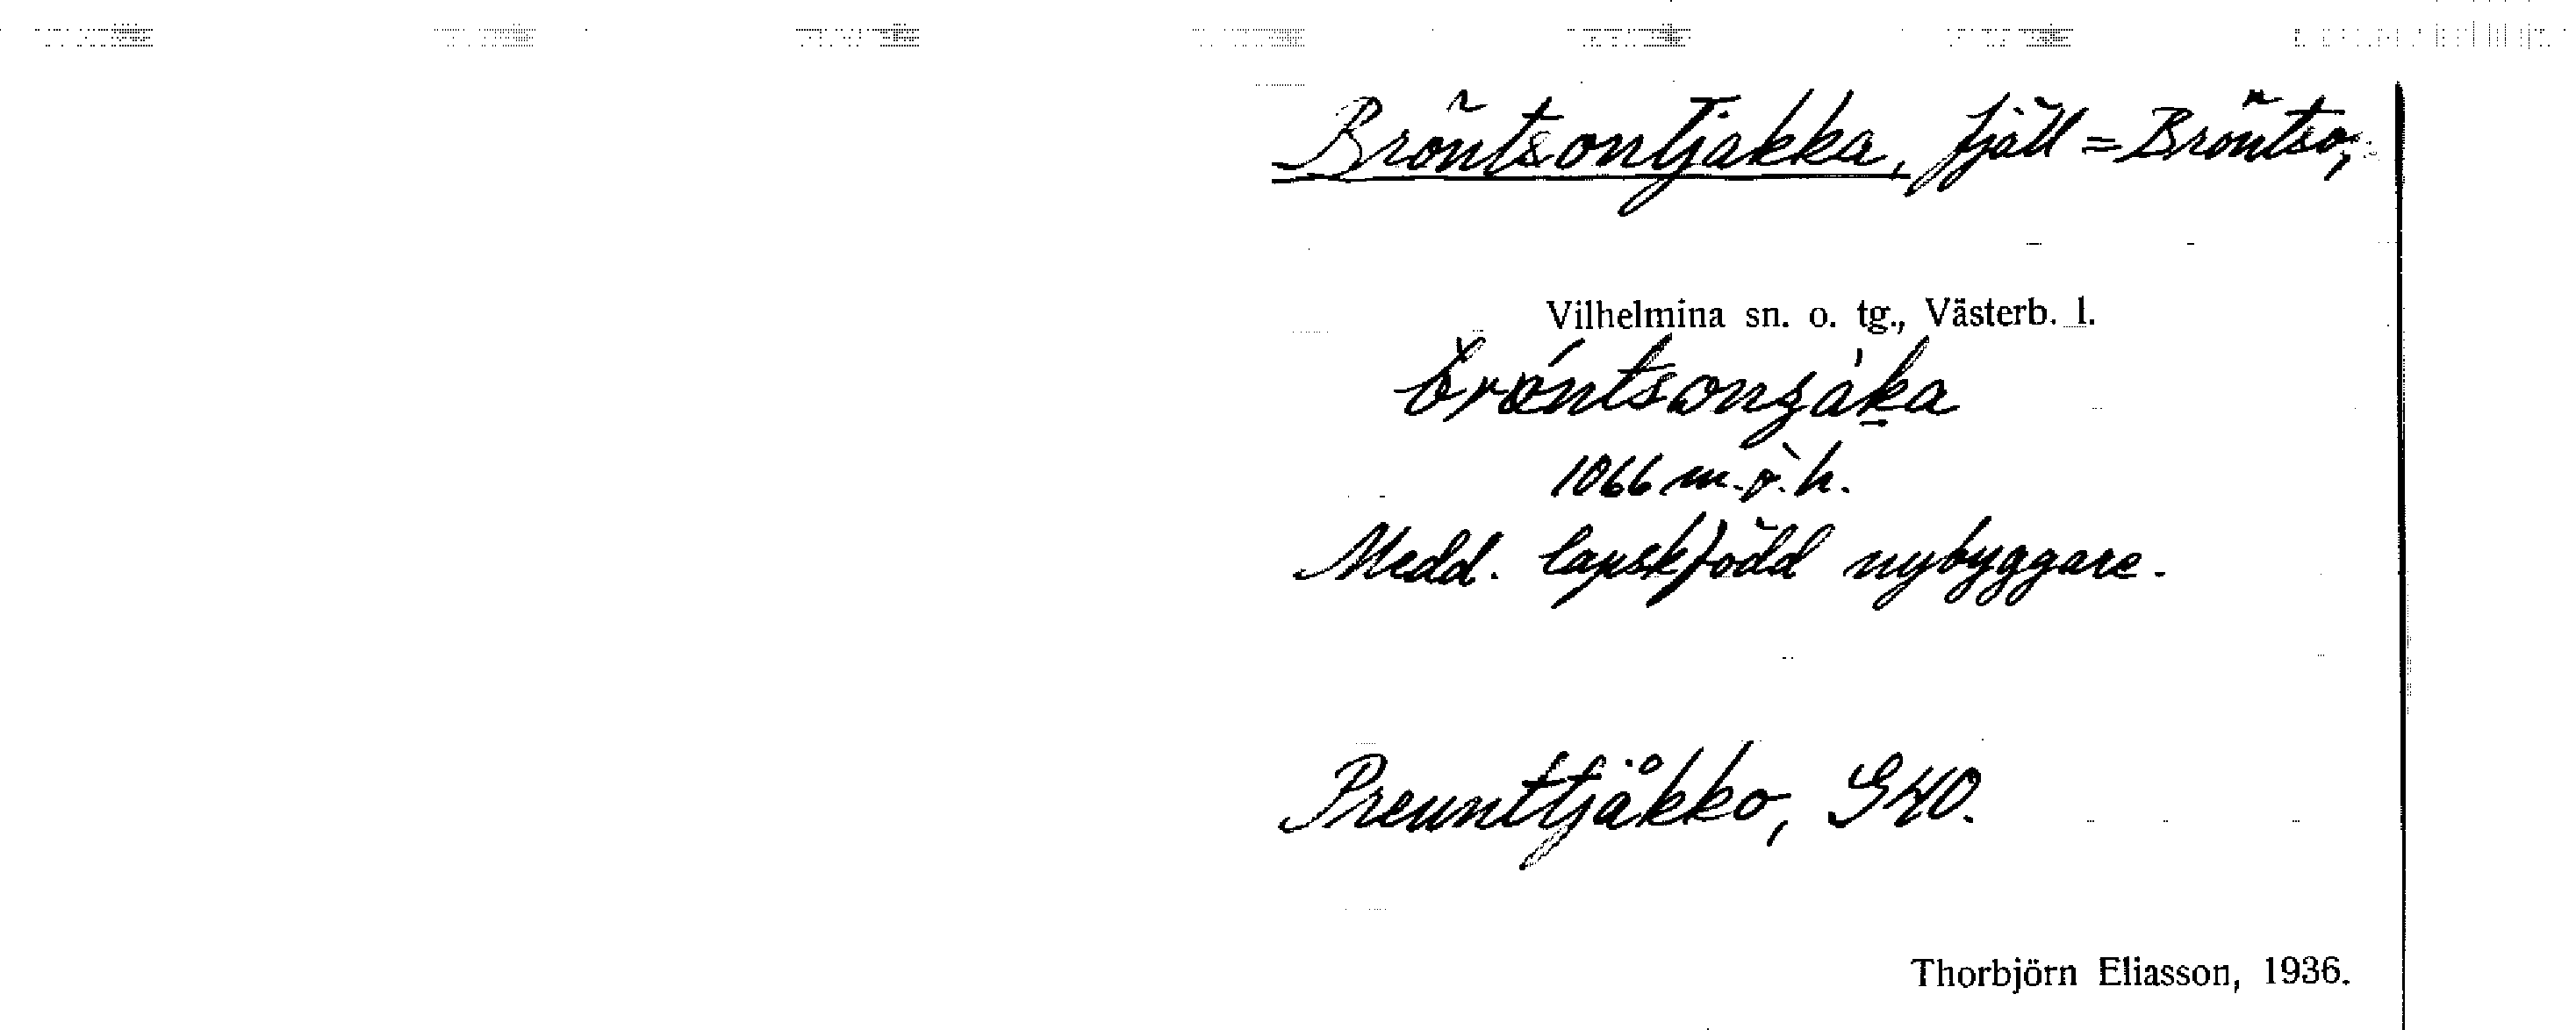 Bröntsontjakka, fjäll = Bröntso,
Vilhelmina sn. o. tg., Västerb. l.
1066 m.ö.h.
Medd. lapskfödd nybyggare.
Preunttjåkko, G40.
Thorbjörn Eliasson, 1936.